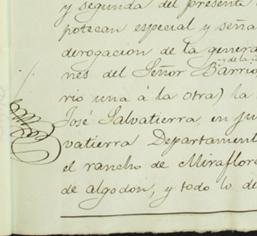 y segunda del presente
potecan especial y seña
derogacion de la genera
nes del Señor Barrio
rio una á la otra) la
José Salvatierra, en ju
vatierra Departament
el rancho de Miraflor
de algodon, y todo lo de